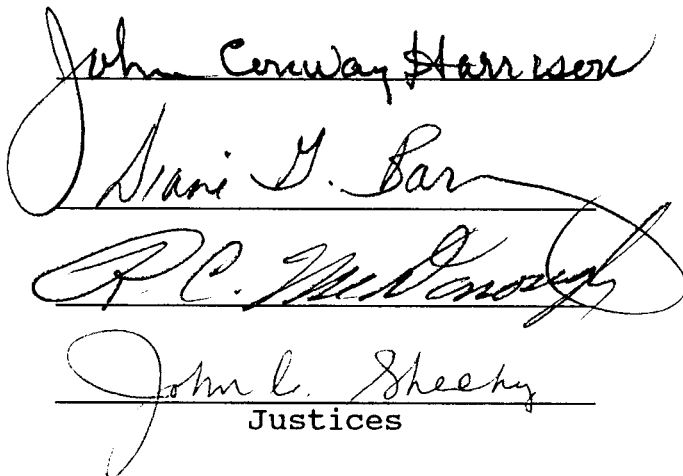 John Conway Harrison
Diane G. Bar
R. C. McDonough
John C. Sheehy
Justices